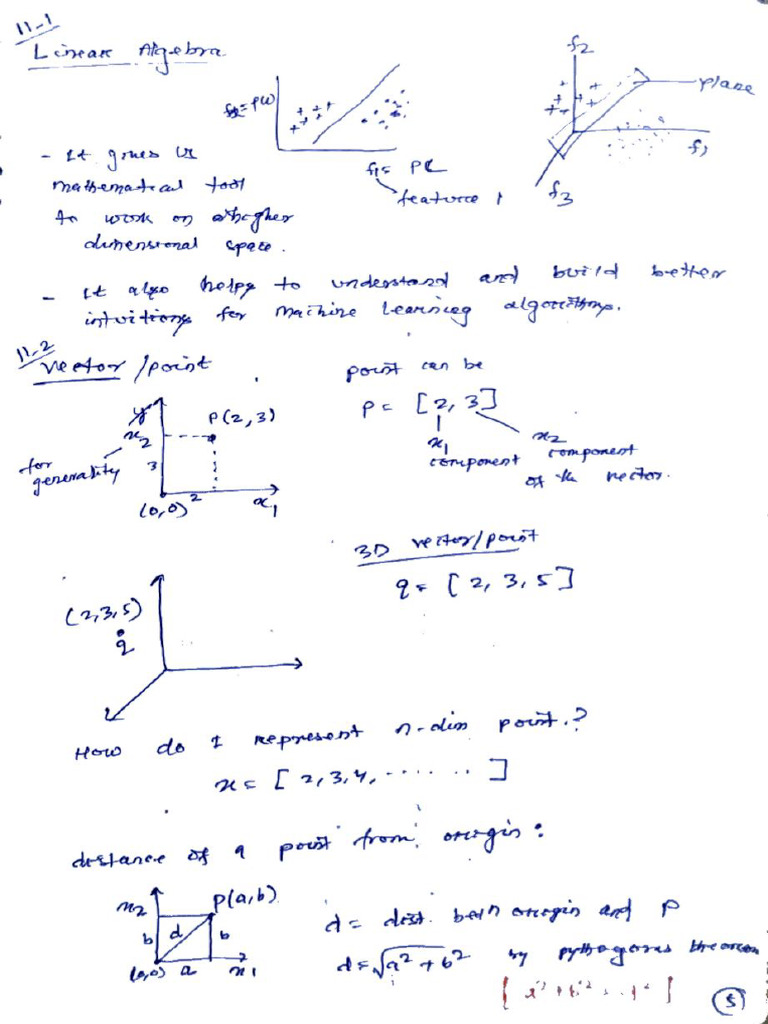 11-1
Linear Algebra
f2 = PW
f1 = PL
feature 1
f2
plane
f1
f3
- It gives us
mathematical tool
to work on a higher
dimensional space.
- It also helps to understand and build better
intuitions for machine learning algorithms.
11.2
vector /point
y
x2
for
generality
3
P(2,3)
(0,0) 2
x1
point can be
P = [2, 3]
x1
component
x2
component
of the vector.
3D vector/point
q = [2, 3, 5]
(2,3,5)
q
How do I represent n-dim point.?
x = [2,3,4, ........ ]
distance of a point from origin:
x2
P(a,b)
b d b
(0,0) a x1
d = dist. betn origin and P
d = √a²+b² by pythagoras theorem
5